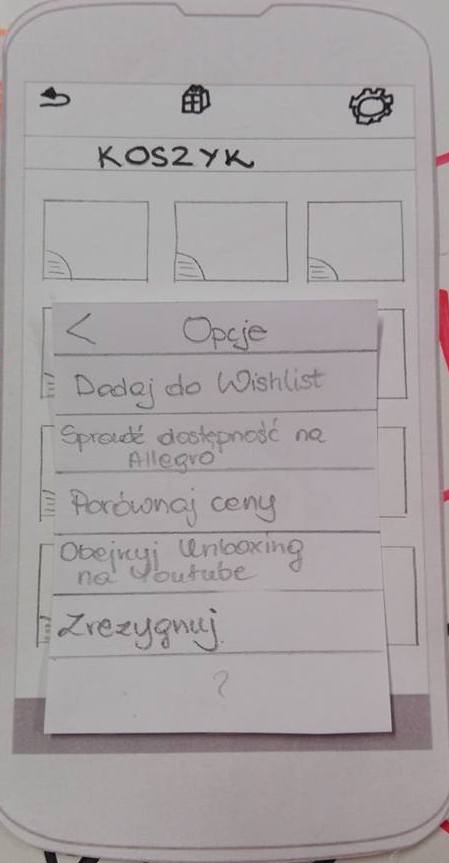 KOSZYK
< Opcje
Dodaj do Wishlist
Sprawdź dostępność na
Allegro
Porównaj ceny
Obejrzyj Unboxing
na Youtube
Zrezygnuj.
?